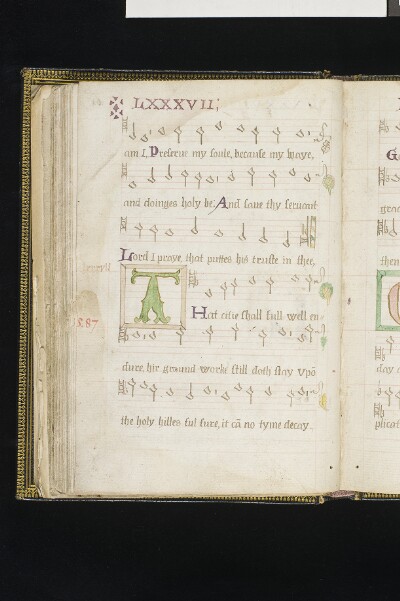 LXXXVII;
am I. Preserue my soule, because my waye,
and doinges holy be: And saue thy seruant
Lord I praye, that puttes his truste in thee,
THat citie shall full well en-
1587
dure, hir ground worke still doth stay vpō
the holy hilles ful sure, it cā no tyme decay.